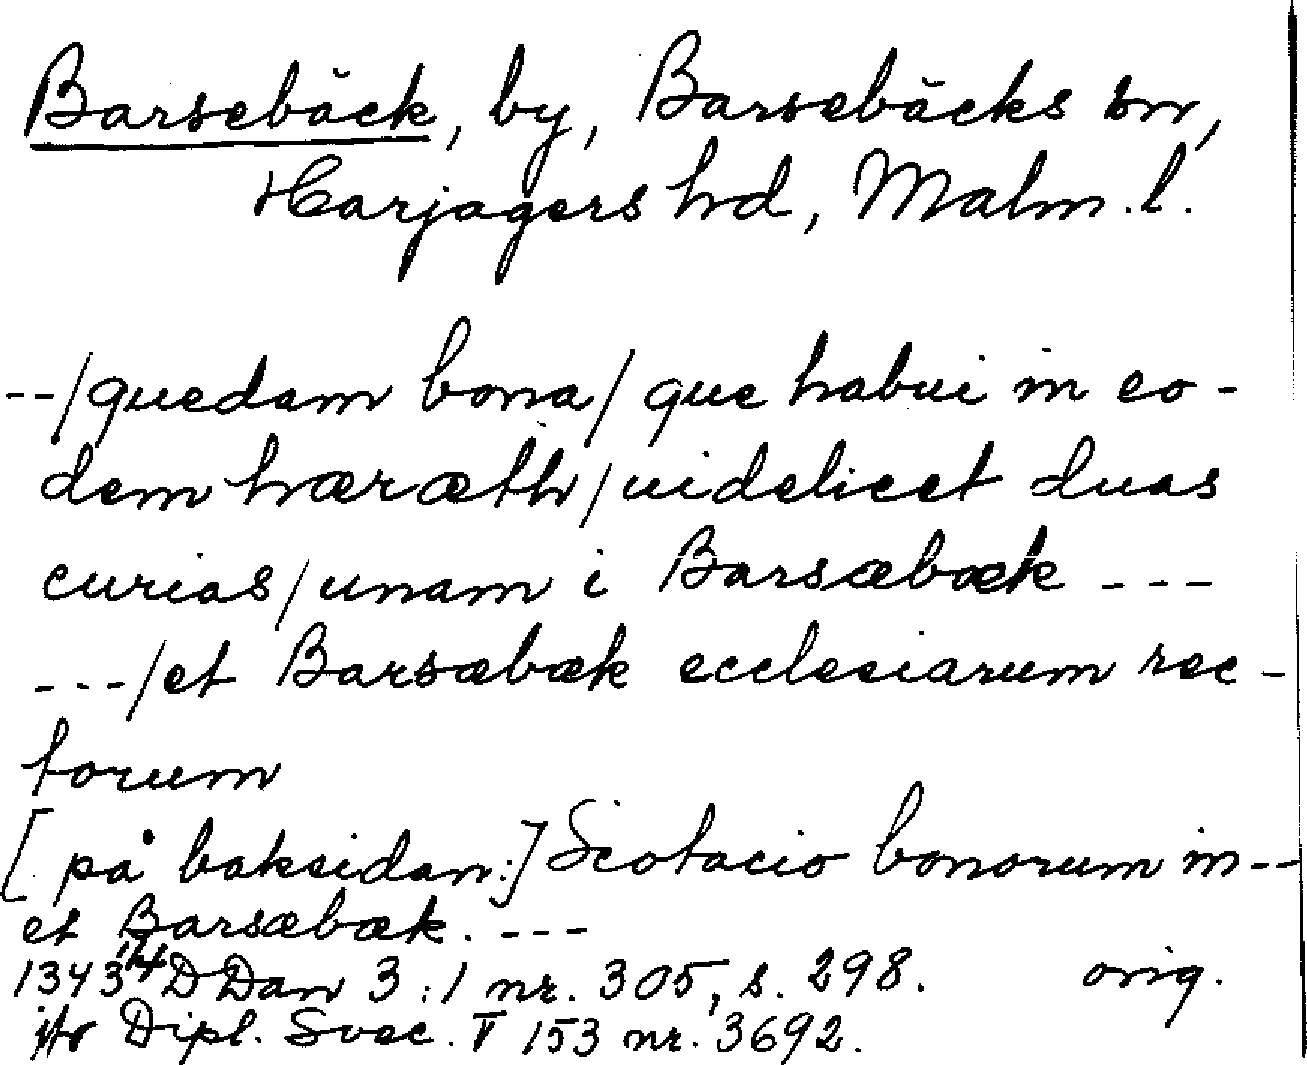 Barsebäck, by, Barsebäcks sn,
Harjagers hd, Malm.l.
--/quedam bona/ que habui in eo-
dem hæræth/uidelicet duas
curias/unam i Barsæbæk ---
---/et Barsæbæk ecclesiarum rec-
torum
[på baksidan:] Scotacio bonorum in--
et Barsæbæk. ---
1343 DDan 3:1 nr. 305, s. 298. orig.
Dipl. Svec. V 153 nr. 3692.